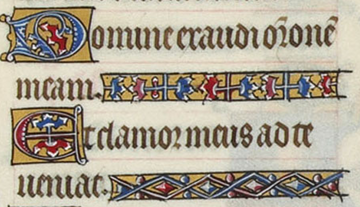 Domine exaudi orōnē
meam.
Et clamor meus ad te
ueniat.